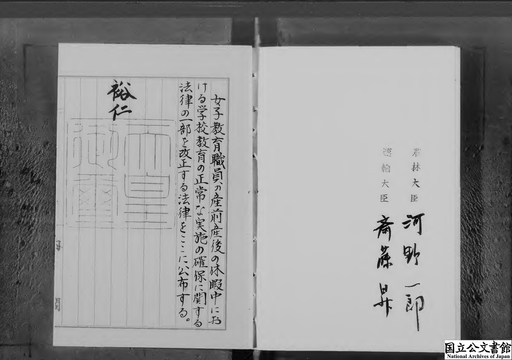 農林大臣 河野一郎
運輸大臣 斎藤昇
女子教育職員の産前産後の休暇中にお
ける学校教育の正常な実施の確保に関する
法律の一部を改正する法律をここに公布する。
裕仁
天皇
御璽
国立公文書館
National Archives of Japan